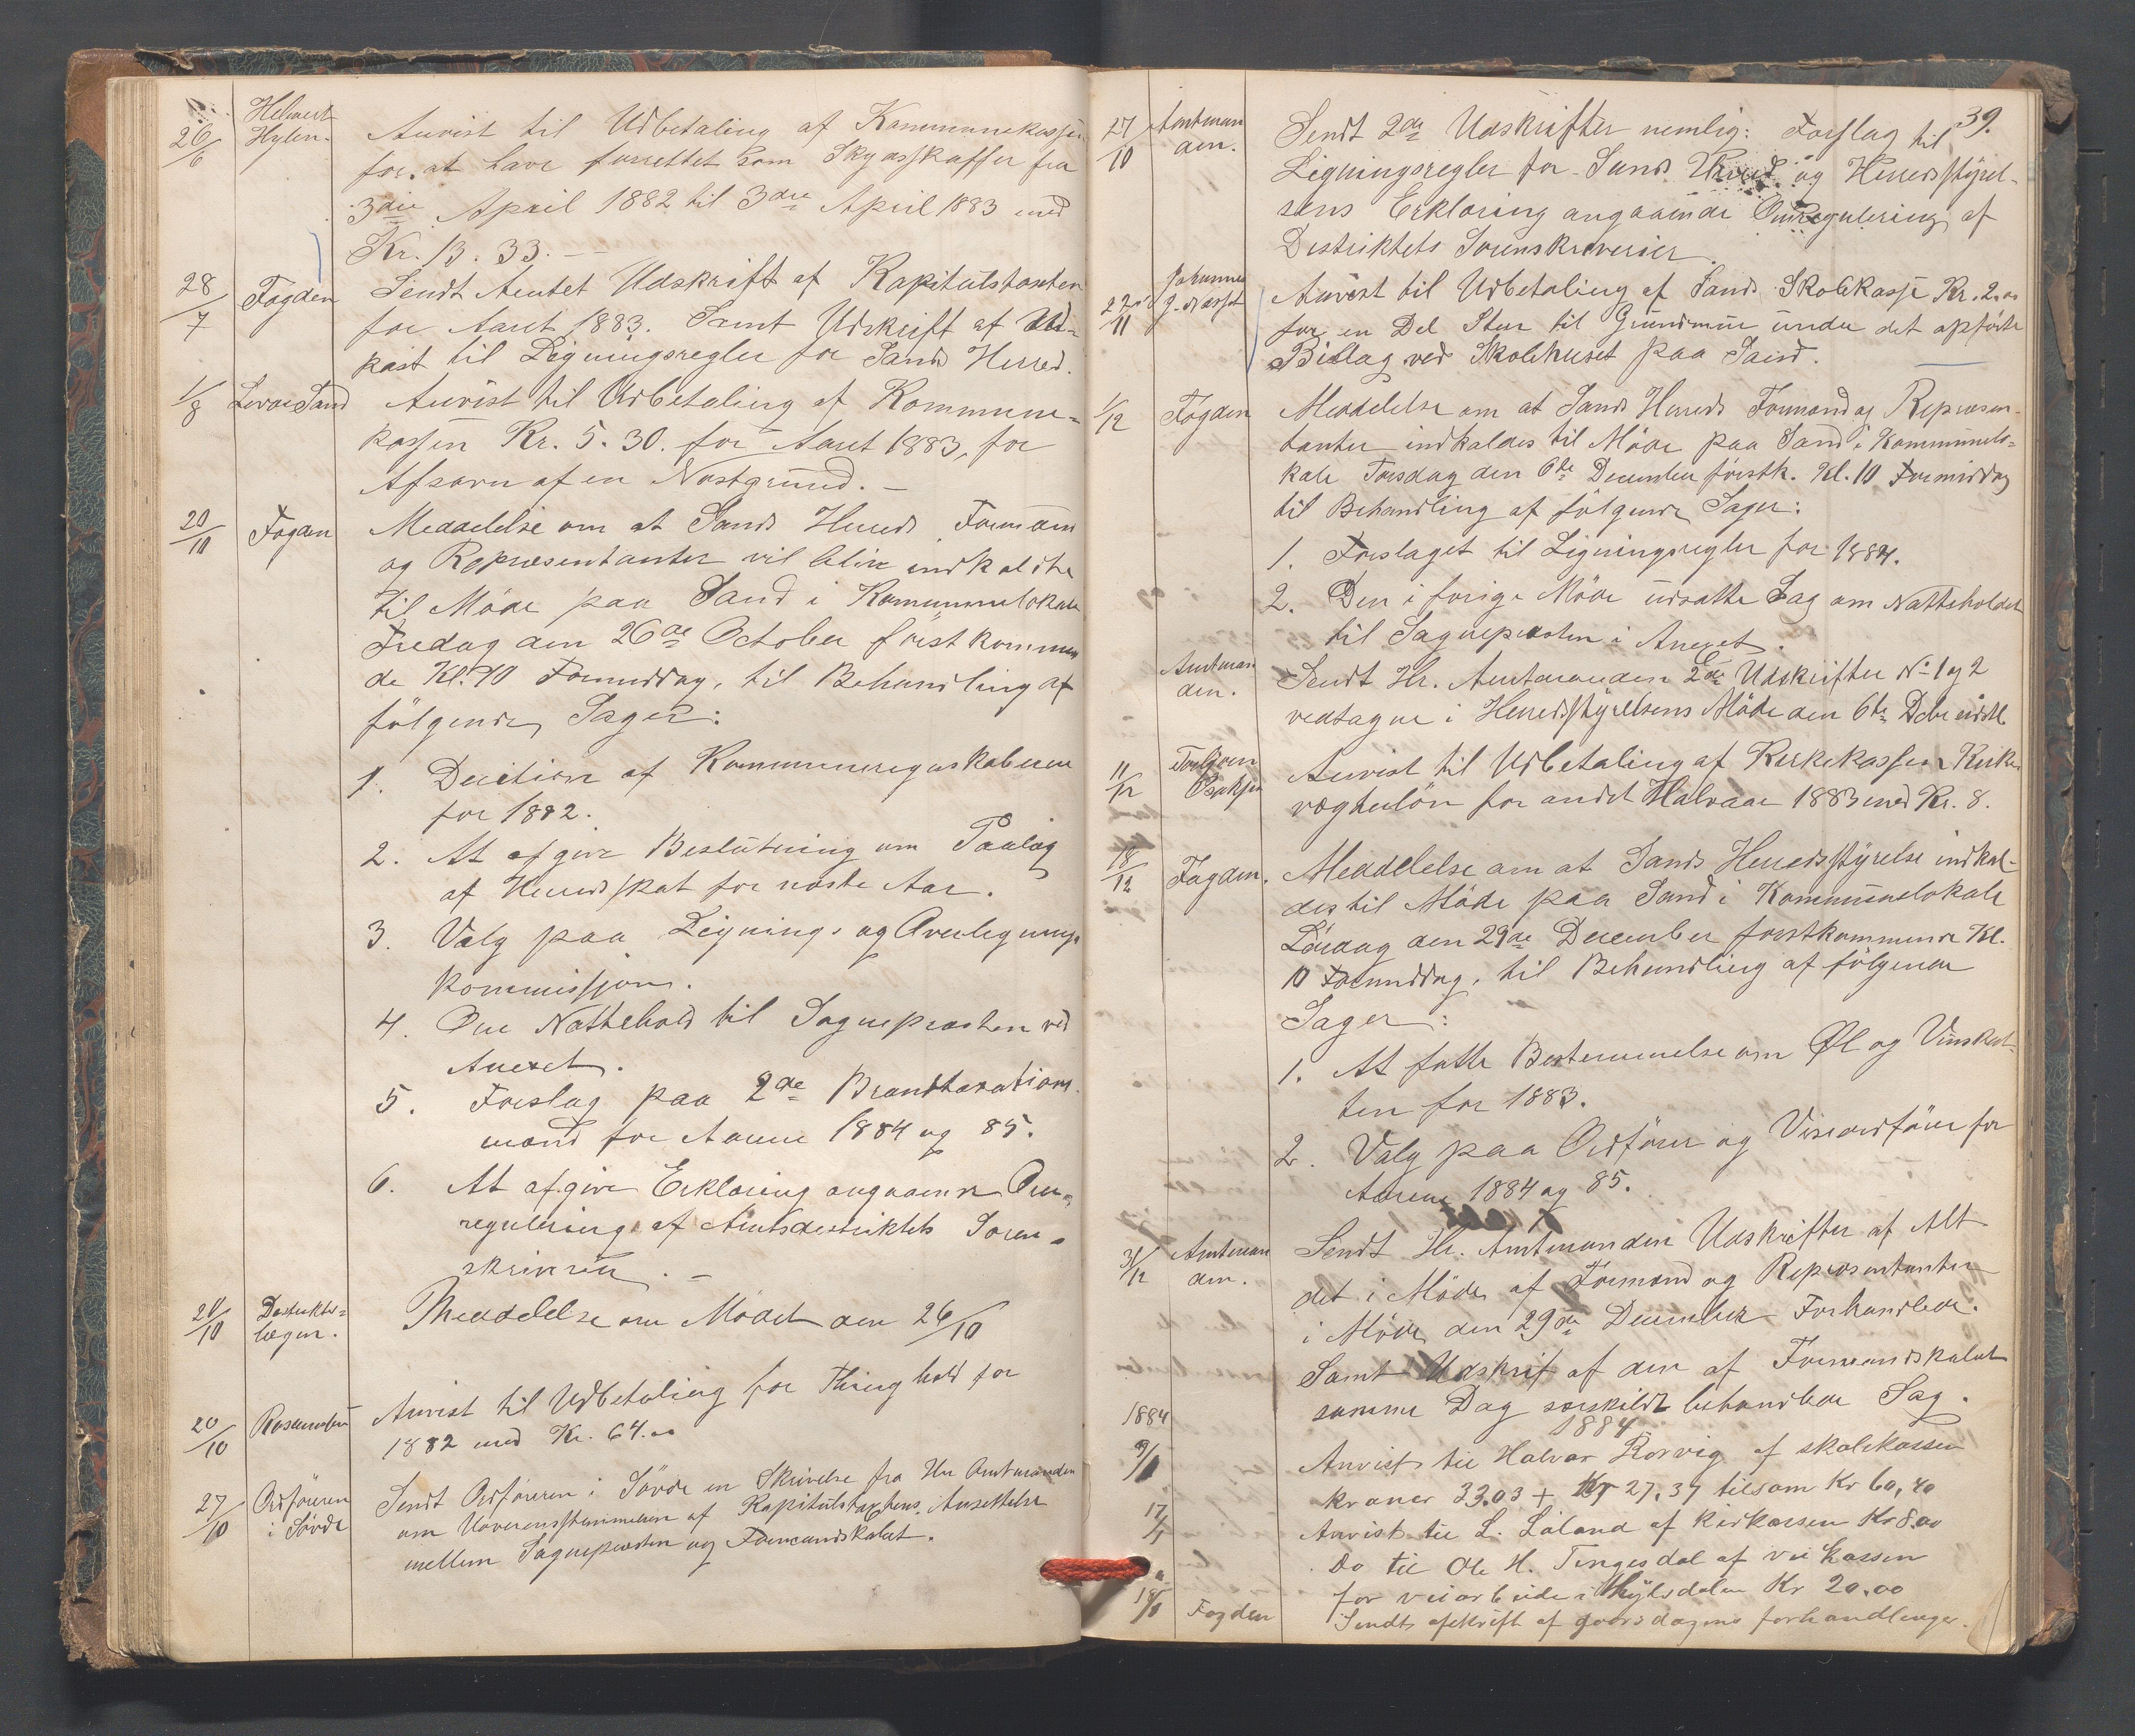 26/6 Helmert Hylen. Anvist til Udbetaling af Kommunekassen
for at have forrettet som Skydsskaffer fra
3die April 1882 til 3die April 1883 med
Kr. 13. 33. --
28/7 Fogden Sendt Amtet Udskrift af Kapitulstaxten
for Aaret 1883. Samt Udskrift af Ud-
kast til Ligningsregler for Sands Herred.
1/8 Sand Anvist til Udbetaling af Kommune-
kassen Kr. 5. 30. for Aaret 1883, for
Afsavn af en Nøstgrund. -
20/10 Fogden Meddelelse om at Sands Herreds Formænd
og Repræsentanter vil blive indkaldte
til Möde paa Sand i Kommunelokale
Fredag den 26de October först kommen
de Kl. 10 Formiddag, til Behandling af
fölgende Sager:
1. Decition af Kommuneregnskaberne
for 1882.
2. At afgive Beslutning om Paalæg
af Herredsskat for næste Aar.
3. Valg paa Lignings og Overlignings
kommissjon.
4. Om Nattehold til Sognepræsten ved
Anexet.
5. Forslag paa 2de Brandtaxations
mænd for Aarene 1884 og 85.
6. At afgive Erklæring angaaende Om-
regulering af Amtsdistriktets Soren-
skriverier. -
21/10 Distrikts-
lægen. Meddelelse om Mödet den 26/10
20/10 Anvist til Udbetaling for Thinghold for
1882 med Kr. 64.00
27/10 Ordföreren
i Sövde Sendt Ordföreren i Sövde en Skrivelse fra Hr Amtmanden
om Uoverensstemmelsen af Kapitulstaxtens Ansettelse
mellem Sognepræsten og Formandskabet.
39.
27/10 Amtman
den. Sendt 2de Udskrifter nemlig: Forslag til
Ligningsregler for Sands Herred og Herredsstyrel-
sens Erklæring angaaende Omregulering af
Distriktets Sorenskriverier.
22/11 Johannes Anvist til Udbetaling af Sands Skolekasse Kr. 2.00
for en Del Sten til Grundmur under det opförte
Bislag ved Skolehuset paa Sand.
1/12 Fogden Meddelelse om at Sands Herreds Formænd og Repræsen-
tanter indkaldes til Möde paa Sand i Kommunelo-
kale Torsdag den 6te December förstk. Kl. 10 Formiddag
til Behandling af fölgende Sager:
1. Forslaget til Ligningsregler for 1884.
2. Den i forige Möde udsatte Sag om Natteholdet
til Sognepræsten i Anexet.
Amtman
den. Sendt Hr. Amtmanden 2de Udskrifter No 1 og 2
vedtagne i Herredsstyrelsens Möde den 6te Debr
11/12 Anvist til Udbetaling af Kirkekassen Kirke
vægterlön for andet Halvaar 1883 med Kr. 8.
18/12 Fogden. Meddelelse om at Sands Herredsstyrelse indkal-
des til Möde paa Sand i Kommunelokale
Lördag den 29de December förstkommende Kl.
10 Formiddag, til Behandling af fölgende
Sager:
1. At fatte Bestemmelse om Øl og Vinskat-
ten for 1883.
2. Valg paa Ordförer og Viseordförer for
Aarene 1884 og 85.
31/12 Amtman
den. Sendt Hr. Amtmanden Udskrifter af Alt
det i Möde af Formænd og Repræsentanter
i Möde den 29de December Forhandlede.
Samt Udskrif af den af Formandskabet
samme Dag særskildt behandlede Sag.
1884 1884
9/1 Anvist til Halvor Rørvig af skolekassen
kroner 33.03 + Kr 27,37 tilsam Kr 60,40
17/1 Anvist til L. Løland af kirkassen Kr 8.00
Do til Ole H. Tengesdal af veikassen
for veiarbeide i Hylsdalen Kr 20.00
18/1 Fogden Sendt afskrift af gaarsdagens forhandlinger.